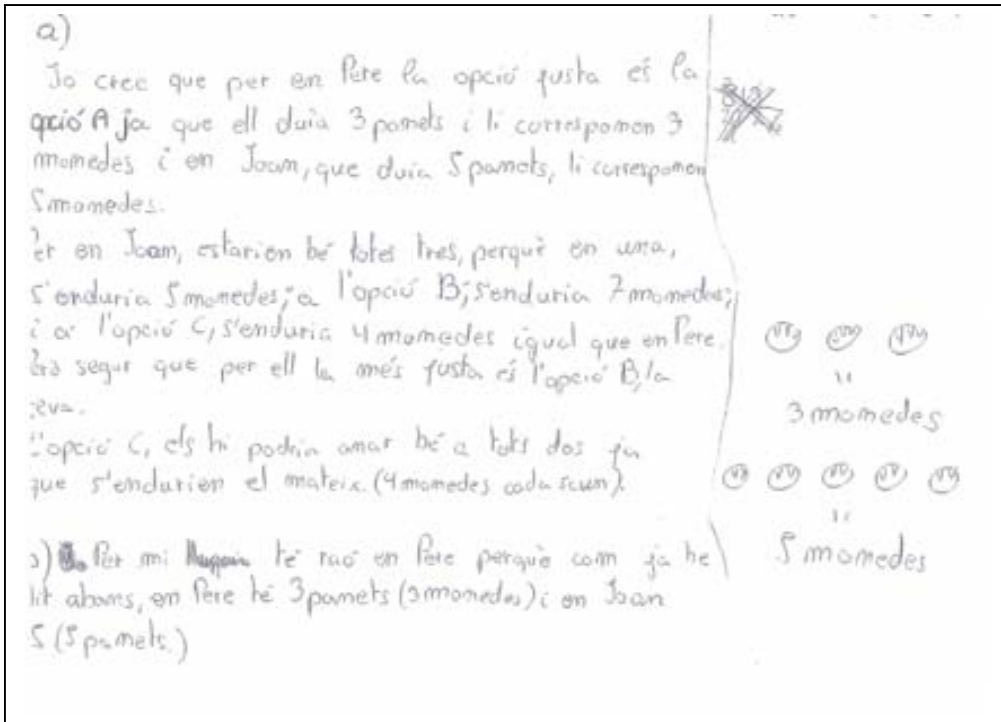 a)
Jo crec que per en Pere la opció justa és la
opció A ja que ell duia 3 panets i li corresponen 3
monedes i en Joan, que duia 5 panets, li corresponen
5 monedes.
Per en Joan, estarien bé totes tres, perquè en una,
s'enduria 5 monedes; a l'opció B; s'enduria 7 monedes;
i a l'opció C, s'enduria 4 monedes igual que en Pere.
segur que per ell la més justa és l'opció B, la
seva.
L'opció C, els hi podria anar bé a tots dos ja
que s'endurien el mateix. (4 monedes cada scun).
3 monedes
5 monedes
) Per mi té raó en Pere perquè com ja he
dit abans, en Pere té 3 panets (3 monedes) i en Joan
5 (5 panets.)